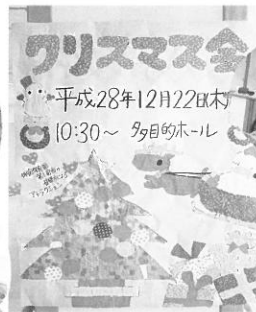 クリスマス会
平成28年12月22日(木)
10:30～ 多目的ホール